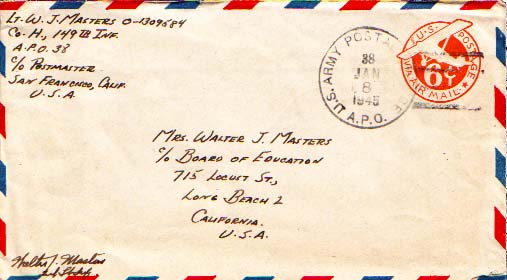 Lt. W. J. Masters O-1309684
Co. H., 149th Inf.
A.P.O. 38
c/o Postmaster
San Francisco, Calif.
U.S.A
U.S. ARMY POSTAL
38
JAN
8
1945
A.P.O.
U.S. POSTAGE
6¢
VIA AIR MAIL
Mrs. Walter J. Masters
c/o Board of Education
715 Locust St.,
Long Beach 2
California.
U.S.A.
Walter J. Masters